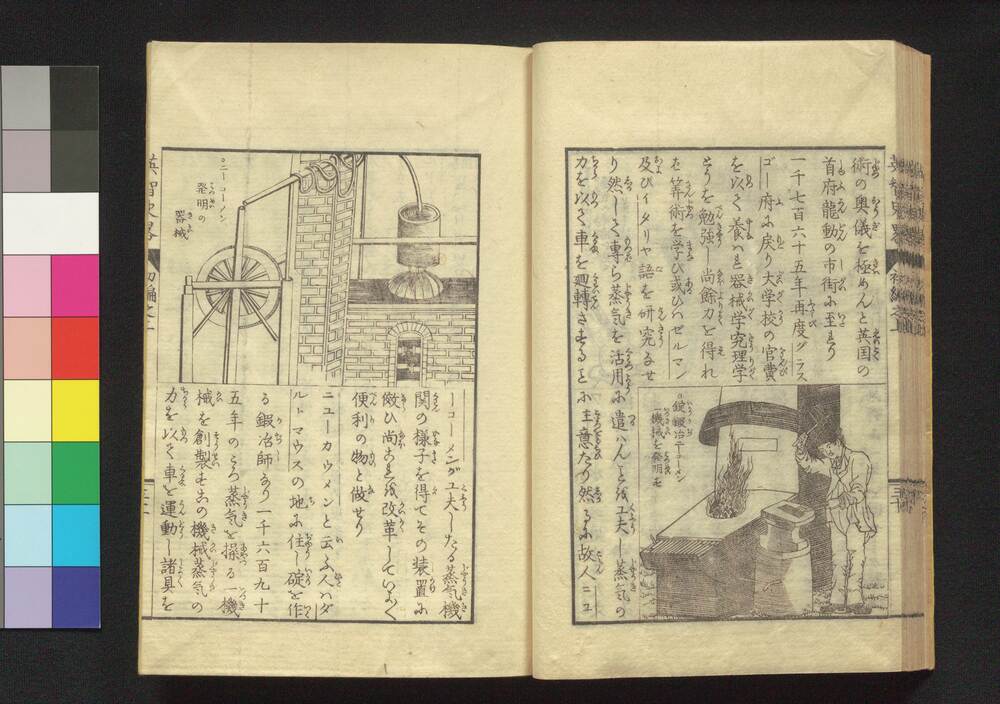 術の奥儀を極めんと英国の
首府龍動の市街に至まり
一千七百六十五年再度グラス
ゴー府に戻り大学校の官費
を以て養はれ器械学究理学
とうを勉強し尚餘力を得れ
ば算術を学び或ひハゼルマン
及びイタリヤ語を研究るせ
り然して専ら蒸気を活用に遣ハんことを工夫し蒸気の
力を以て車を廻轉さすることに主意たり然るに故人ニュ
○錠鍛冶ニューコーメン
機械を発明す
ーコーメンが工夫したる蒸気機
関の様子を得てその装置に
倣ひ尚これを改革していよく
便利の物と做せり
ニューカウメンと云ふ人ハダ
ルトマウスの地に住し碇を作
る鍛冶師なり一千六百九十
五年のころ蒸気を操る一機
械を創製せりこの機械蒸気の
力を以て車を運動し諸具を
○ニーコーメン
発明の
器械